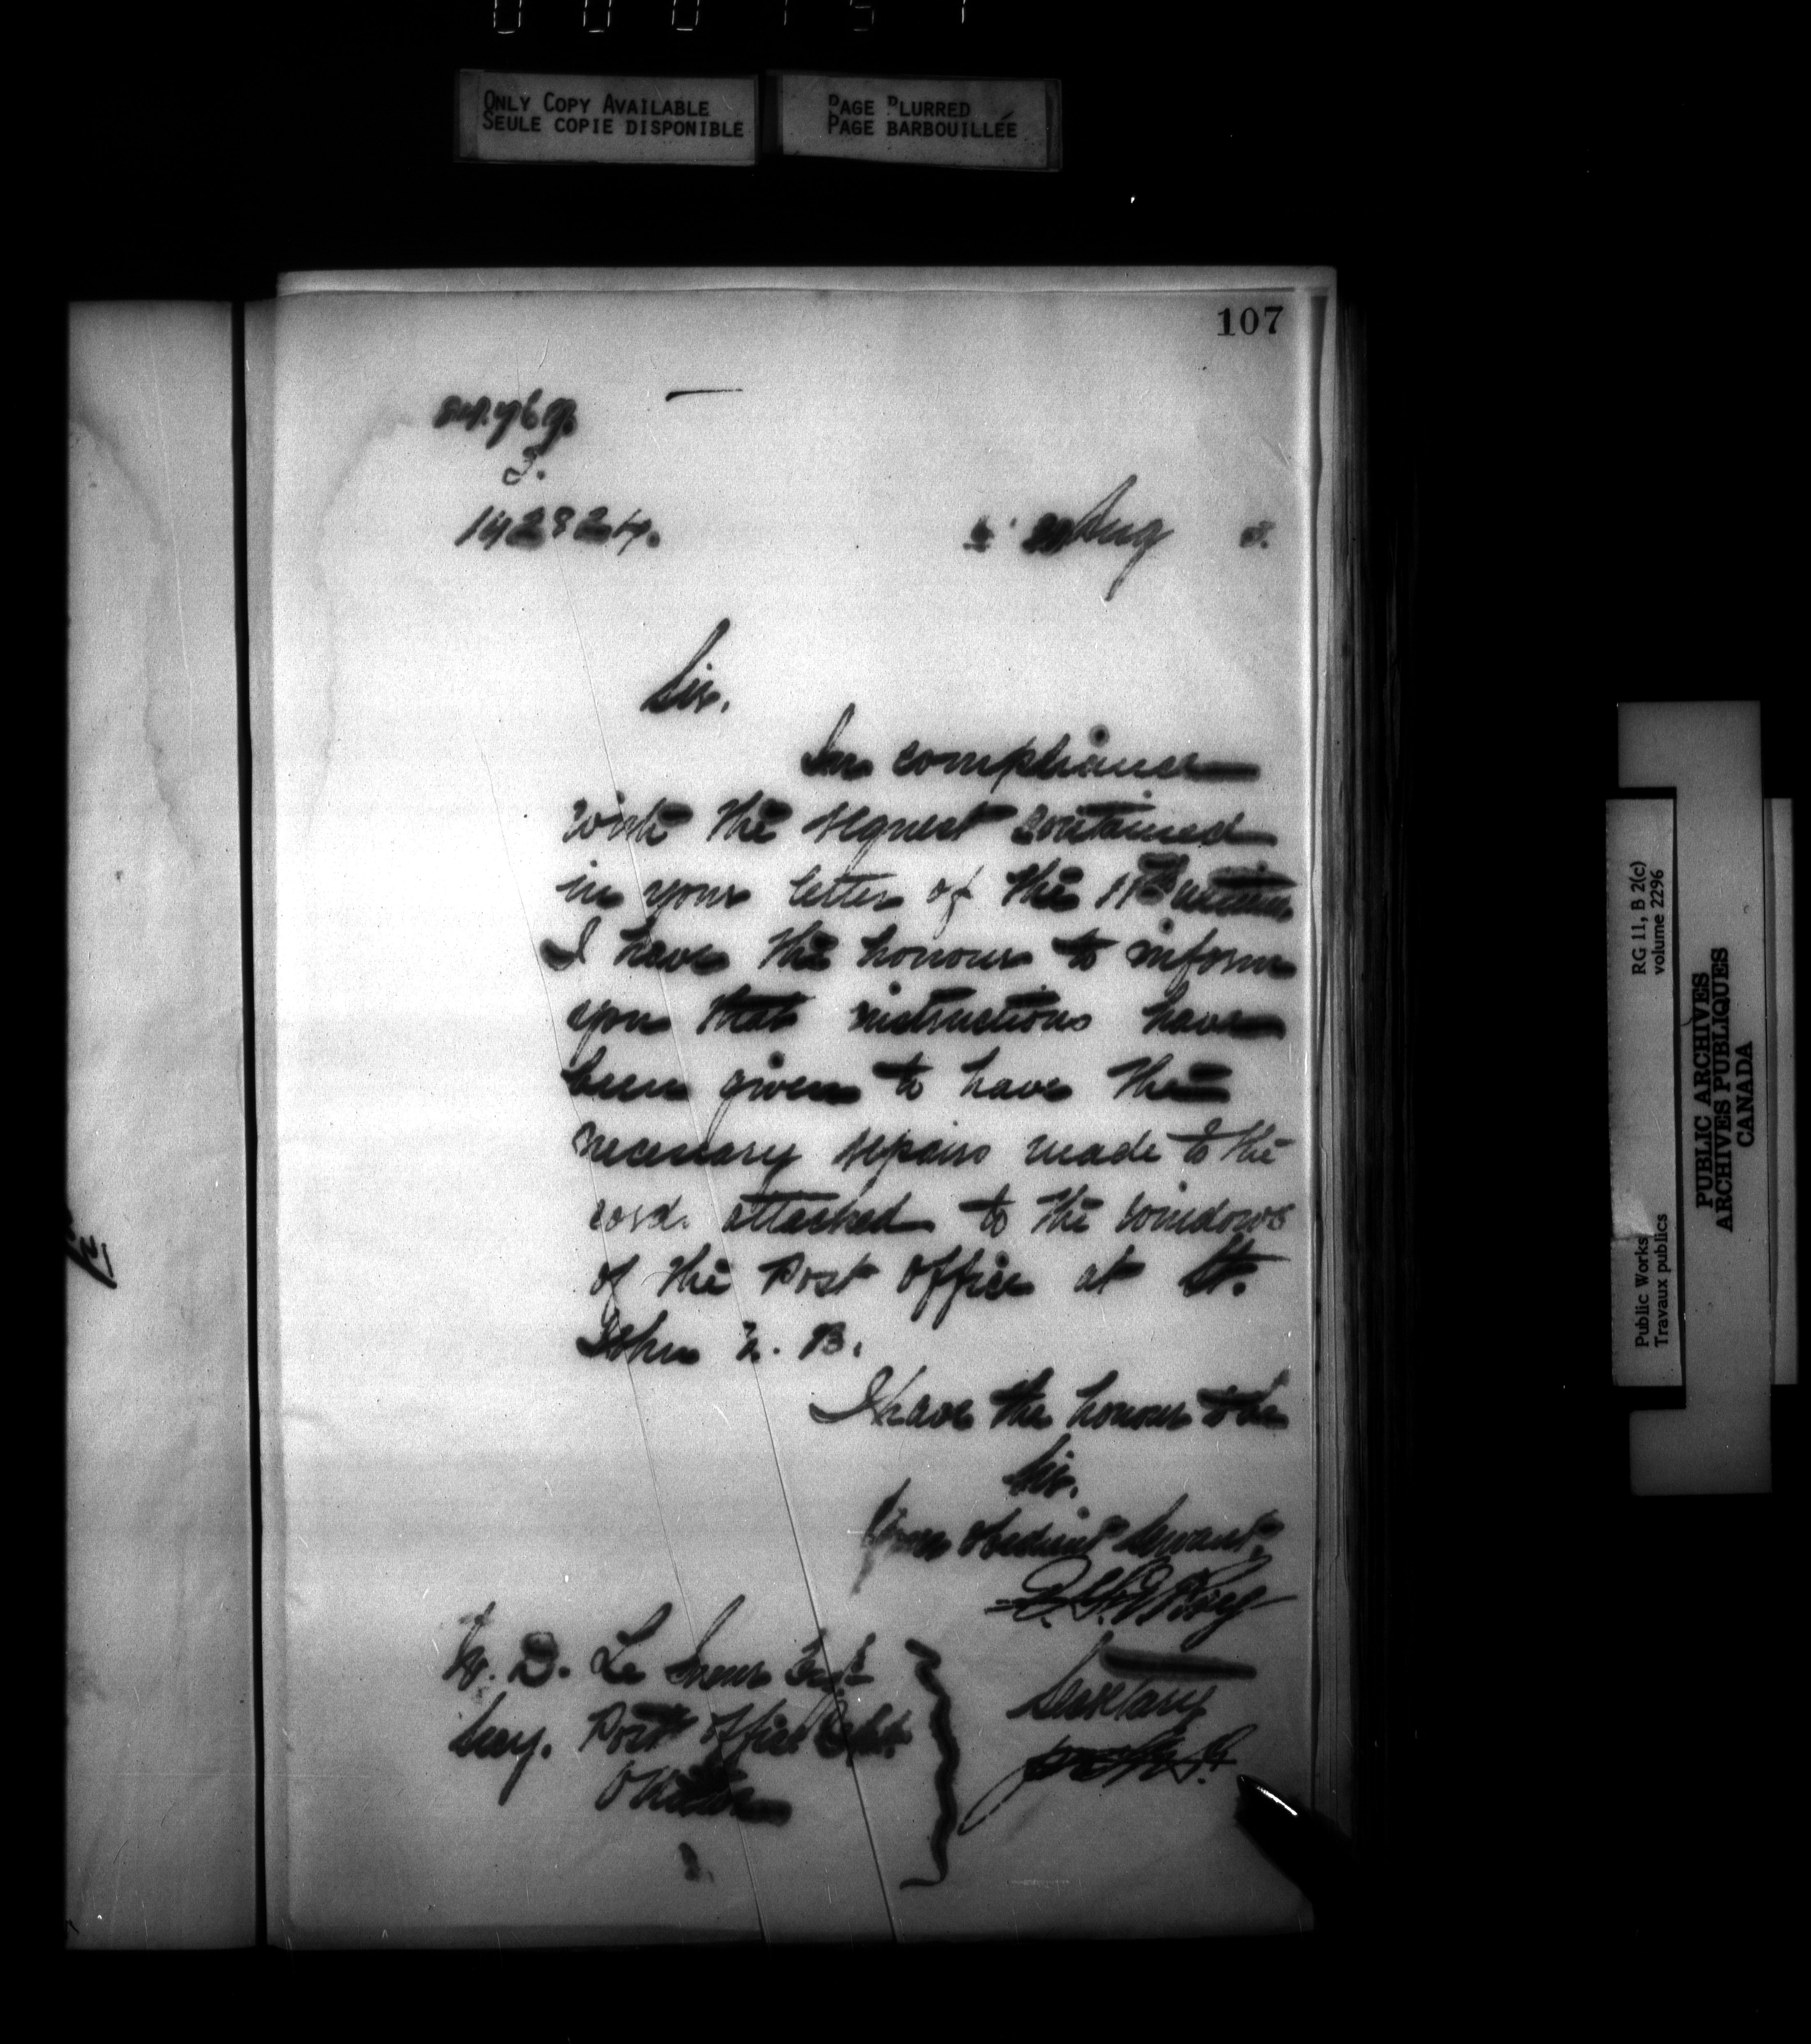 ONLY COPY AVAILABLE
SEULE COPIE DISPONIBLE
PAGE BLURRED
PAGE BARBOUILLÉE
107
3.
142824.
Aug 3.
Sir.
In compliance
with the request contained
in your letter of the 11th
I have the honour to inform
you that instructions have
been given to have the
necessary repairs made to the
cord. attached to the windows
of the Post Office at St.
John N. B.
I have the honour to be
Sir.
Your obedient Servant,
Roy
Secretary
W. D. Le Sueur Esq.
Secy. Post Office Dept.
Ottawa
RG 11, B 2(c)
volume 2296
Public Works
Travaux publics
PUBLIC ARCHIVES
ARCHIVES PUBLIQUES
CANADA